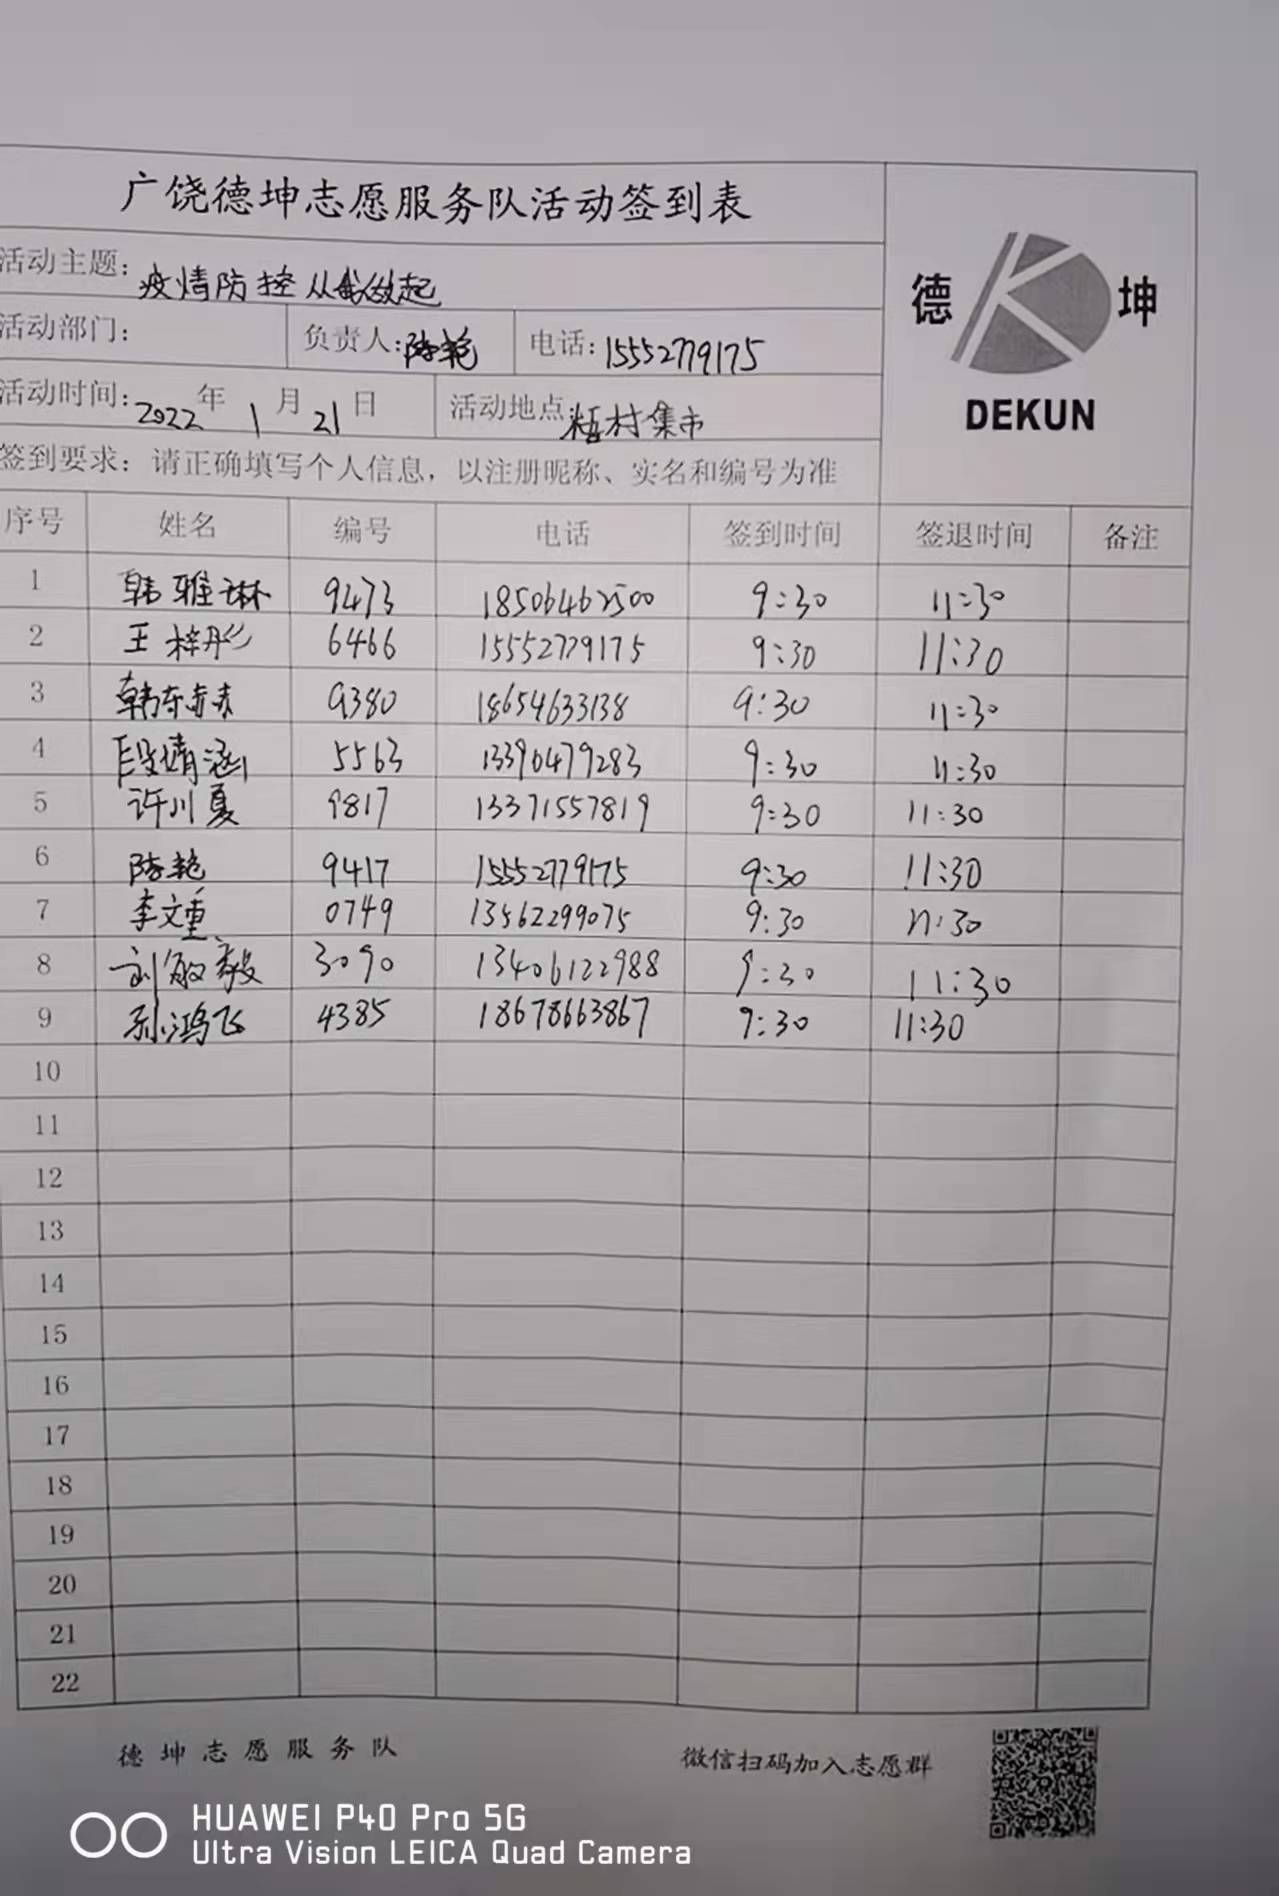 广饶德坤志愿服务队活动签到表
德 坤
DEKUN
活动主题: 疫情防控从我做起
活动部门: 负责人: 陈艳 电话: 15552779175
活动时间: 2022 年 1 月 21 日 活动地点 村集市
签到要求: 请正确填写个人信息, 以注册昵称、实名和编号为准
序号 姓名 编号 电话 签到时间 签退时间 备注
1 韩雅琳 9473 18506462500 9:30 11:30
2 王梓彤 6466 15552779175 9:30 11:30
3 韩东 9380 18654633138 9:30 11:30
4 段婧涵 5563 13396479283 9:30 11:30
5 许川夏 9817 13371557819 9:30 11:30
6 陈艳 9417 15552779175 9:30 11:30
7 李文重 0749 13562299075 9:30 11:30
8 刘敏毅 3090 13406122988 9:30 11:30
9 孙鸿飞 4385 18678663867 9:30 11:30
10
11
12
13
14
15
16
17
18
19
20
21
22
德坤志愿服务队 微信扫码加入志愿群
HUAWEI P40 Pro 5G
Ultra Vision LEICA Quad Camera